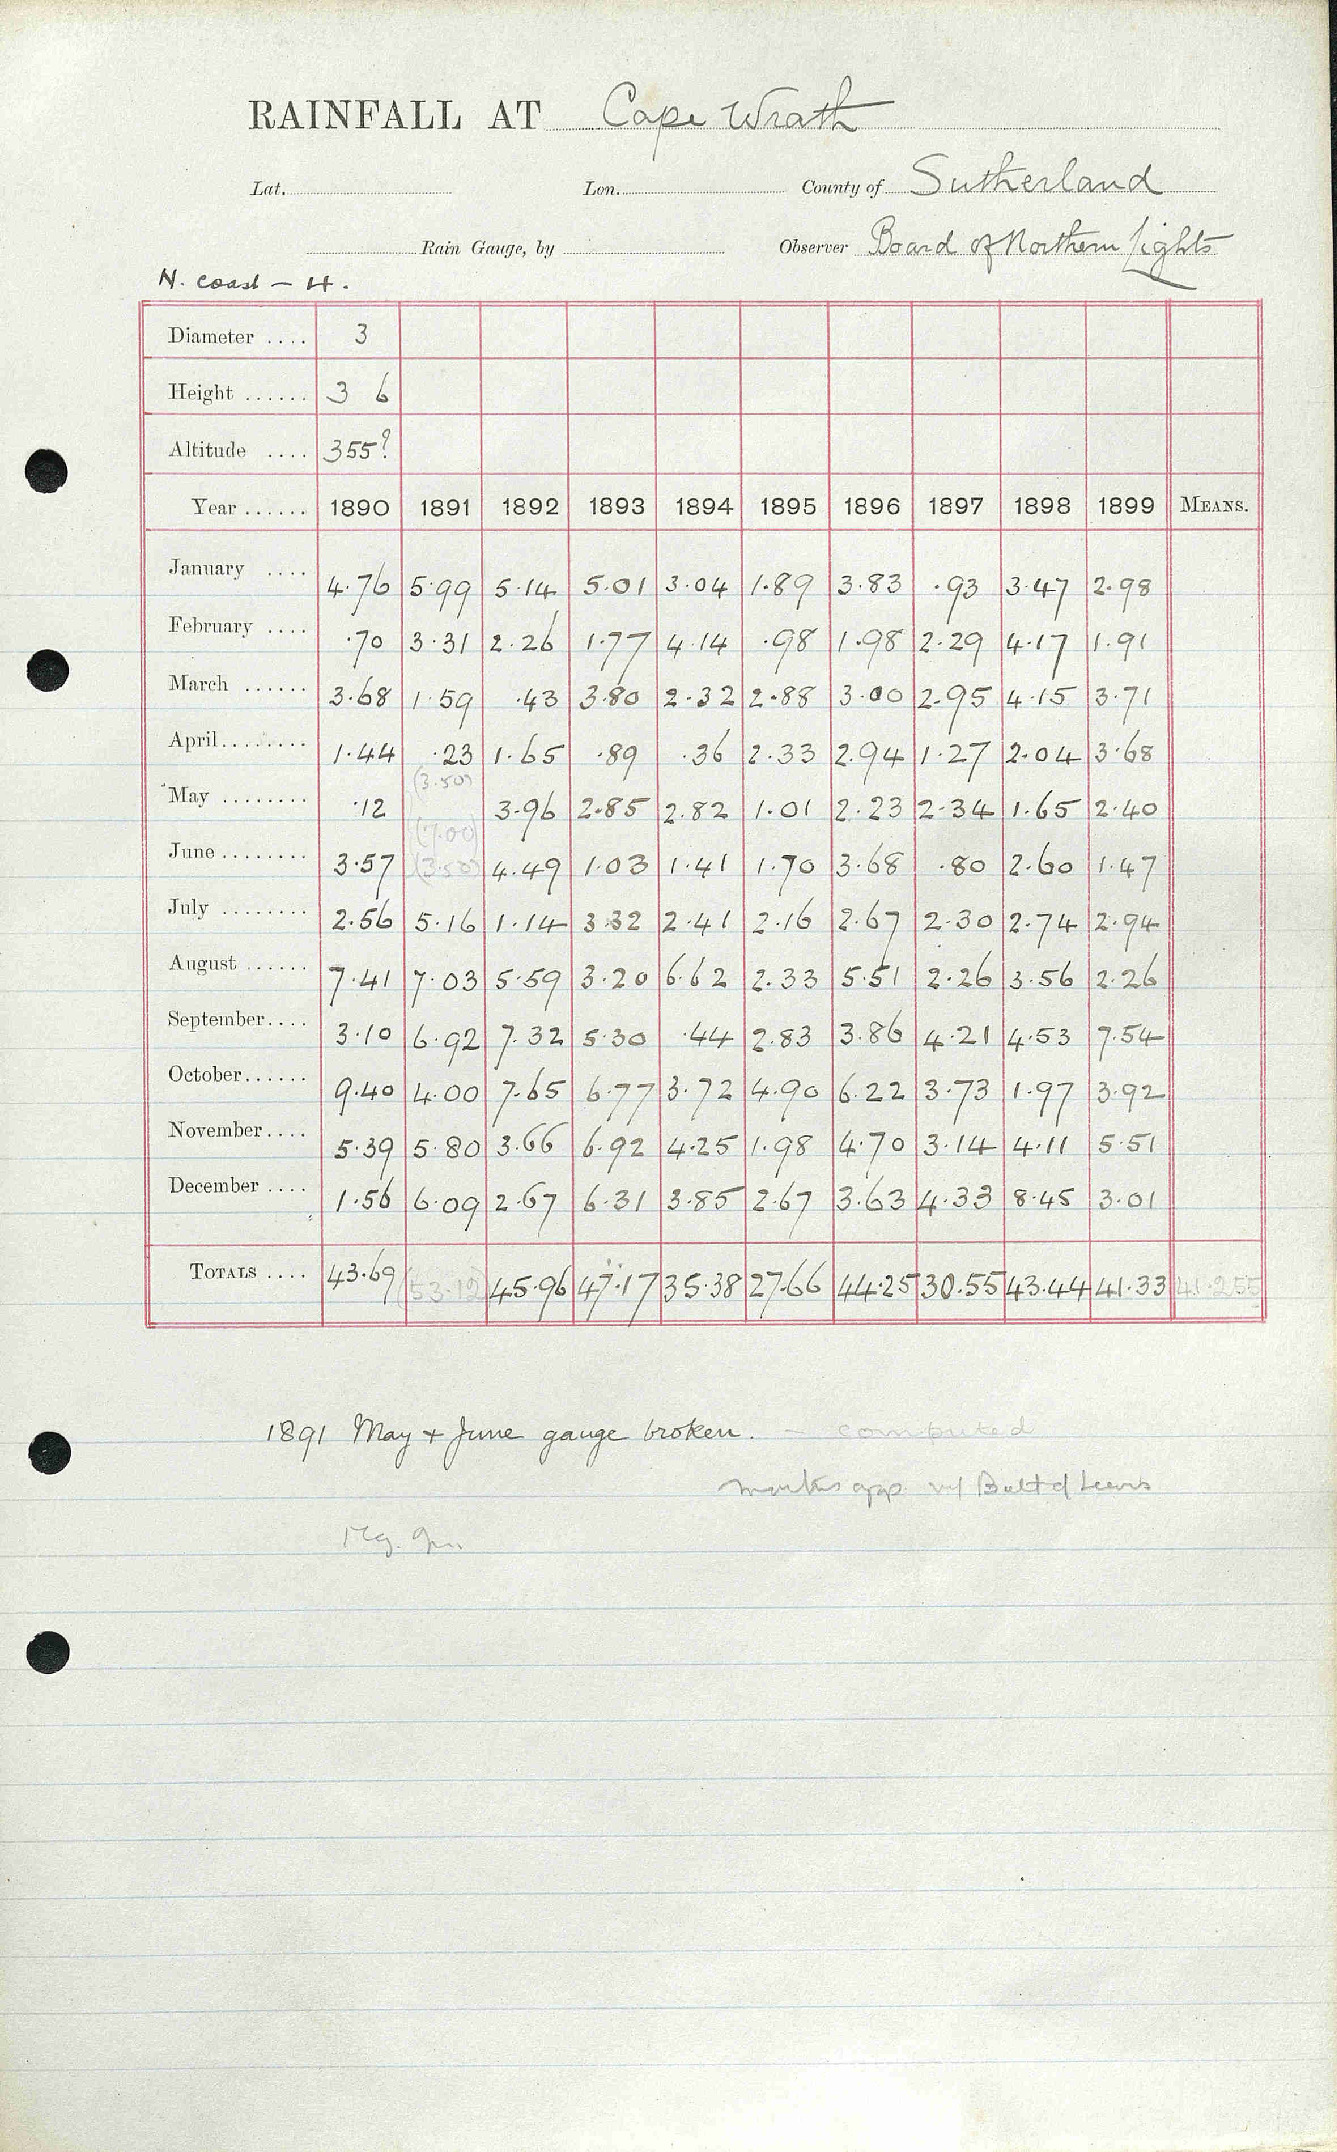 RAINFALL AT Cape Wrath
Lat. Lon. County of Sutherland
Rain Gauge, by Observer Board of Northern Lights
N. coast - 4.
Diameter .... 3
Height ...... 3 6
Altitude .... 355?
Year ...... 1890 1891 1892 1893 1894 1895 1896 1897 1898 1899 MEANS.
January .... 4.76 5.99 5.14 5.01 3.04 1.89 3.83 .93 3.47 2.98
February .... .70 3.31 2.26 1.77 4.14 .98 1.98 2.29 4.17 1.91
March ...... 3.68 1.59 .43 3.80 2.32 2.88 3.00 2.95 4.15 3.71
April........ 1.44 .23 1.65 .89 .36 2.33 2.94 1.27 2.04 3.68
May ........ .12 (3.50) 3.96 2.85 2.82 1.01 2.23 2.34 1.65 2.40
(7.00)
June ........ 3.57 (3.50) 4.49 1.03 1.41 1.70 3.68 .80 2.60 1.47
July ........ 2.56 5.16 1.14 3.32 2.41 2.16 2.67 2.30 2.74 2.94
August ...... 7.41 7.03 5.59 3.20 6.62 2.33 5.51 2.26 3.56 2.26
September.... 3.10 6.92 7.32 5.30 .44 2.83 3.86 4.21 4.53 7.54
October...... 9.40 4.00 7.65 6.77 3.72 4.90 6.22 3.73 1.97 3.92
November.... 5.39 5.80 3.66 6.92 4.25 1.98 4.70 3.14 4.11 5.51
December .... 1.56 6.09 2.67 6.31 3.85 2.67 3.63 4.33 8.45 3.01
TOTALS .... 43.69 (53.12) 45.96 47.17 35.38 27.66 44.25 30.55 43.44 41.33 41.255
1891 May + June gauge broken. - computed
months app. w/ Butt of Lewis